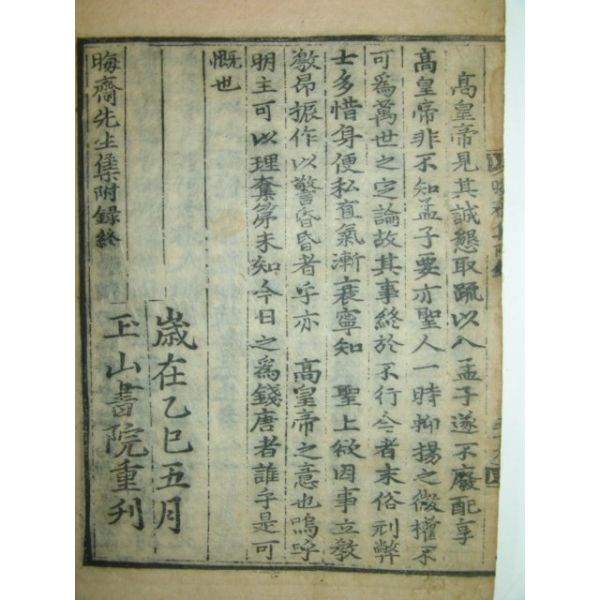 高皇帝見其誠懇取疏以入孟子遂不廢配享
高皇帝非不知孟子要亦聖人一時抑揚之微權不
可爲萬世之定論故其事終於不行今者末俗刓弊
士多惜身便私直氣漸衰寧知 聖上欲因事立敎
激昂振作以警昏昏者乎亦 高皇帝之意也嗚呼
明主可以理奪第未知今日之爲錢唐者誰乎是可
慨也
歲在乙巳五月
玉山書院重刊
晦齋先生集附錄終